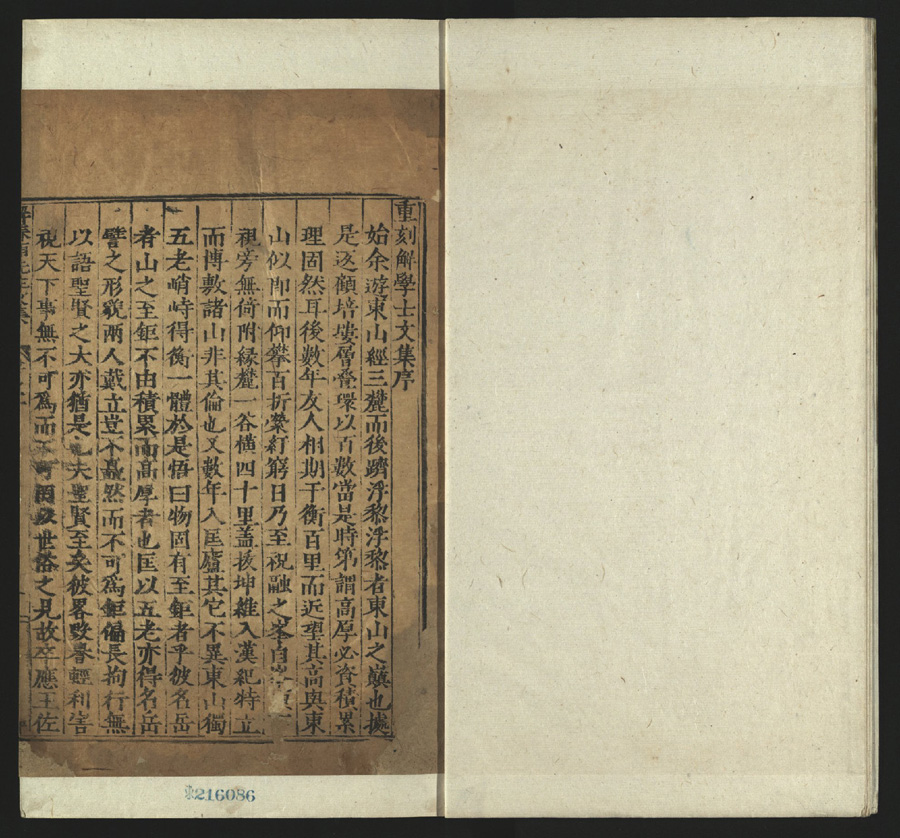 重刻解學士文集序
始余遊東山經三麓而後躋浮黎浮黎者東山之巔也據
是返顧培塿層疊環以百數當是時第謂高厚必資積累
理固然耳後數年友人相期于衡百里而近望其高與東
山似即而仰攀百折縈紆窮日乃至祝融之峯自
視旁無倚附緣麓一谷橫四十里蓋拔坤維入漢紀特立
而博敷諸山非其倫也又數年入匡廬其它不異東山獨
五老峭峙得衡一體於是悟曰物固有至鉅者乎彼名岳
者山之至鉅不由積累而高厚者也匡以五老亦得名岳
譬之形貌兩人戴立豈不矗然而不可為鉅偏長拘行無
以語聖賢之大亦猶是也夫聖賢至矣彼畧毀譽輕利害
視天下事無不可為而不世俗之見故卒應王佐
216086